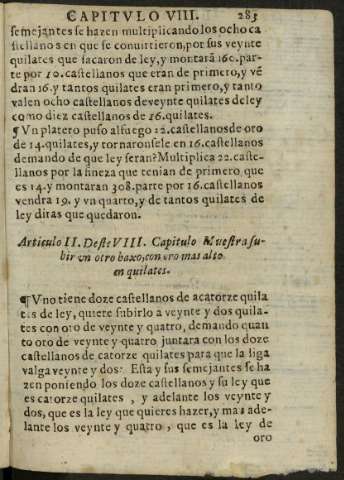 CAPITVLO VIII. 285
semejantes se hazen multiplicando los ocho ca
stellanos en que se conuirtieron, por sus veynte
quilates que sacaron de ley, y montarã 160. par-
te por 10. castellanos que eran de primero, y vẽ
dran 16. y tantos quilates eran primero, y tanto
valen ocho castellanos de veynte quilates de ley
como diez castellanos de 16. quilates.
¶ Vn platero puso al fuego 22. castellanos de oro
de 14. quilates, y tornaronsele en 16. castellanos
demando de que ley seran? Multiplica 22. caste-
llanos por la fineza que tenian de primero, que
es 14. y montaran 308. parte por 16. castellanos
vendra 19. y vn quarto, y de tantos quilates de
ley diras que quedaron.
Articulo II. Deste VIII. Capitulo Muestra su-
bir vn otro baxo, con oro mas alto
en quilates.
¶ Vno tiene doze castellanos de a catorze quila
tes de ley, quiere subirlo a veynte y dos quila-
tes con oro de veynte y quatro, demando quan
to oro de veynte y quatro juntara con los doze
castellanos de catorze quilates para que la liga
valga veynte y dos? Esta y sus semejantes se ha
zen poniendo los doze castellanos y su ley que
es catorze quilates, y adelante los veynte y
dos, que es la ley que quieres hazer, y mas ade-
lante los veynte y quatro, que es la ley de
oro